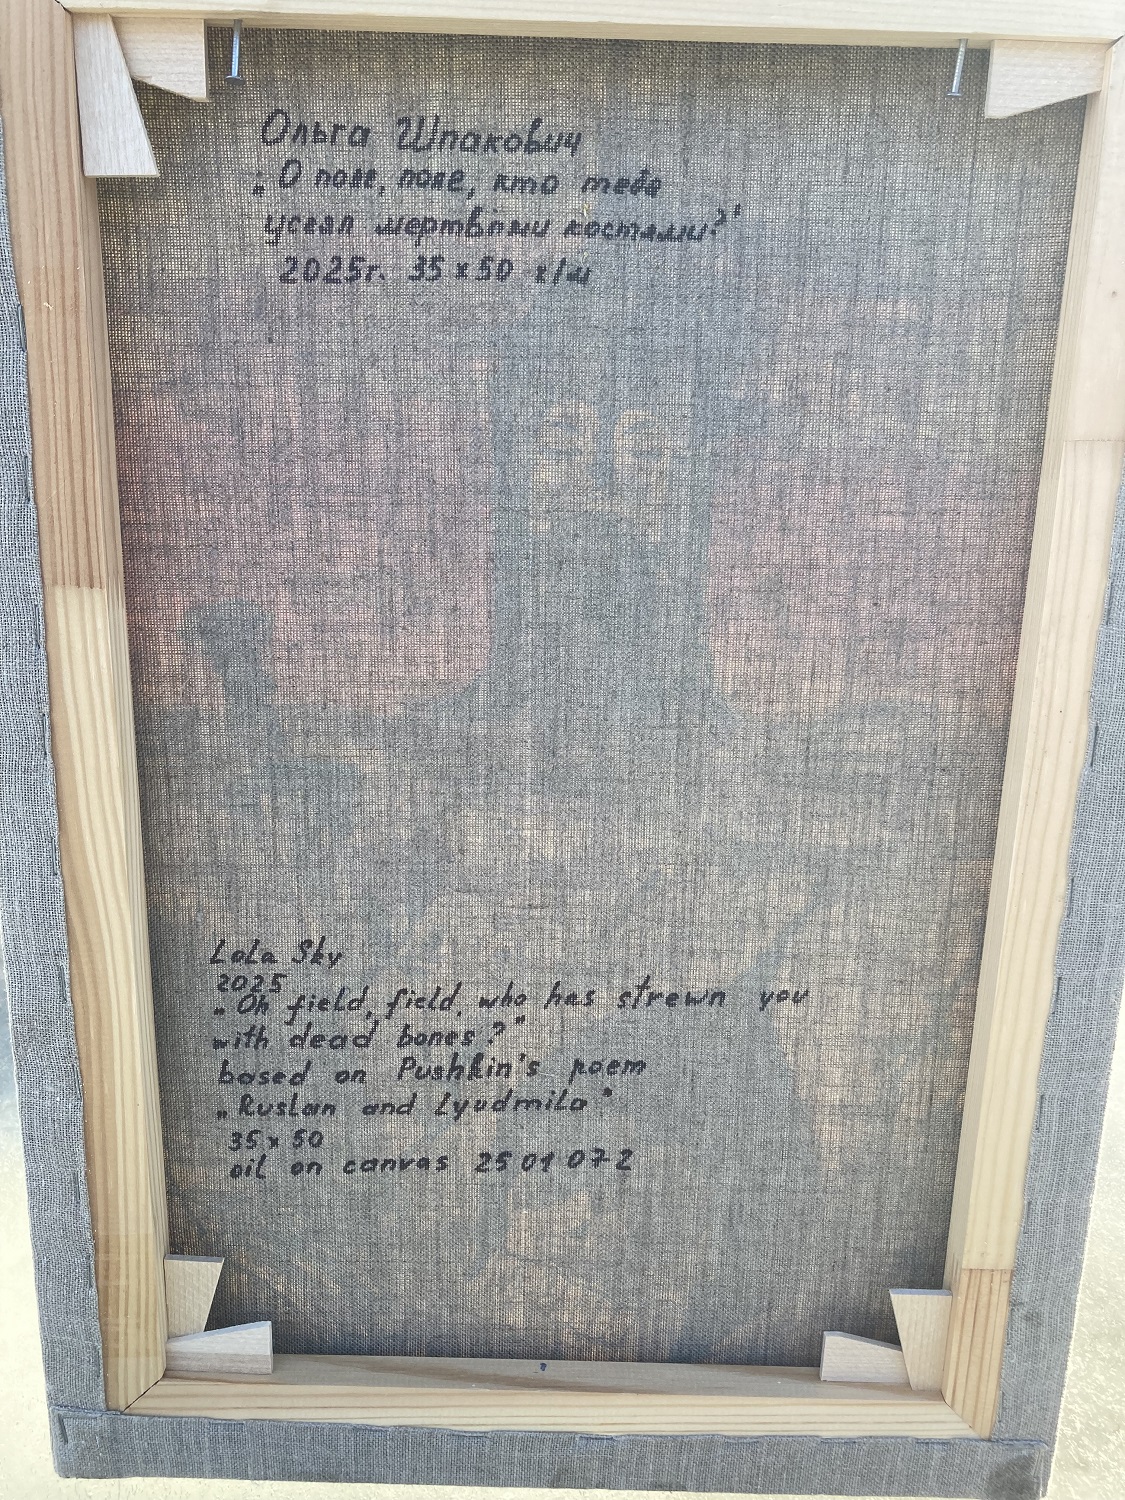 Ольга Шпакович
„О поле, поле, кто тебя
усеял мертвыми костями?"
2025г. 35x50 х/м
Lola Sky
2025
„Oh field, field, who has strewn you
with dead bones?"
based on Pushkin's poem
„Ruslan and Lyudmila"
35x50
oil on canvas 2501072